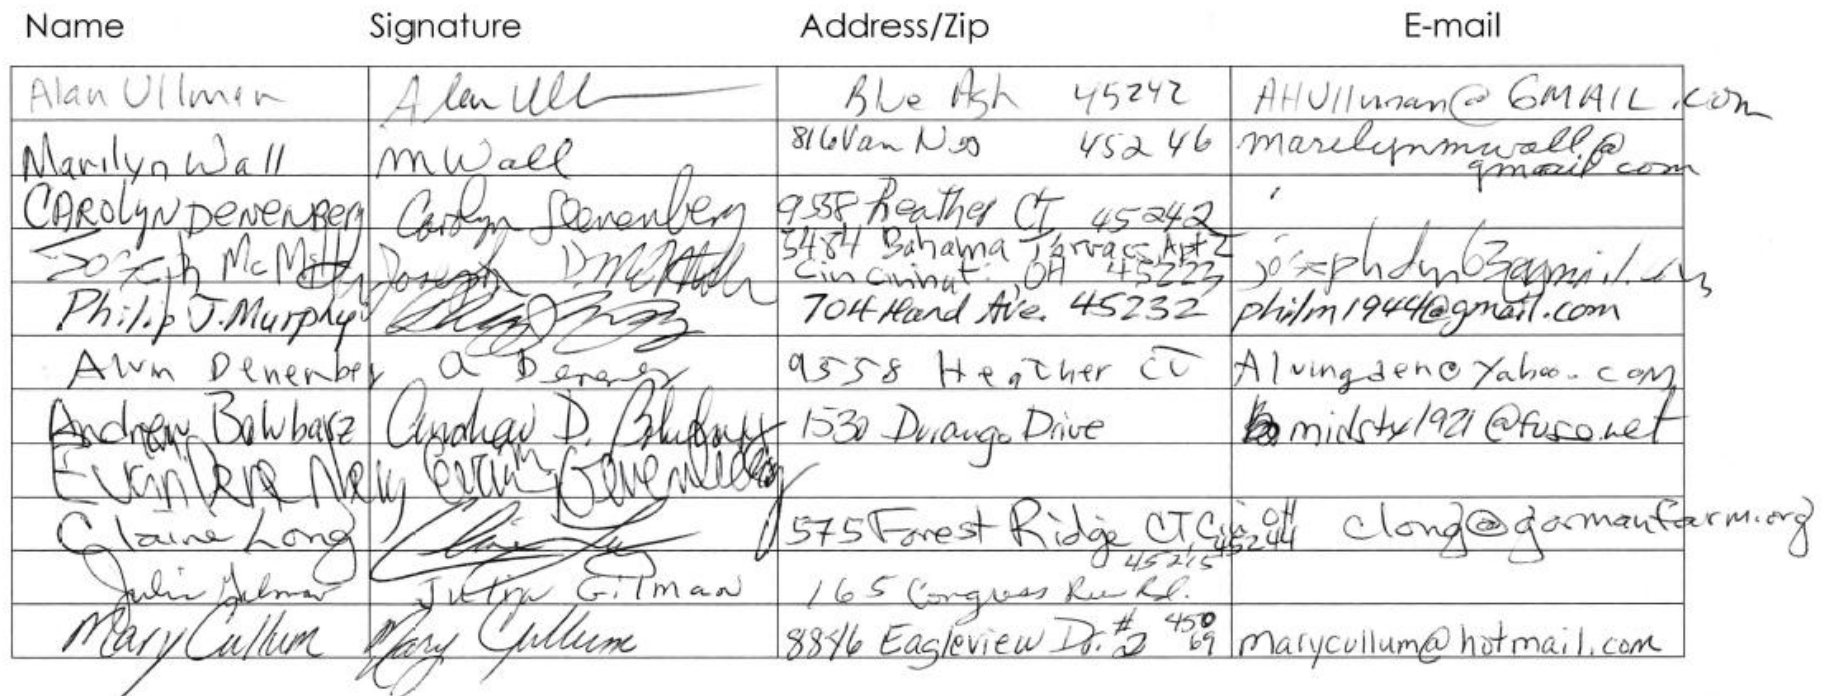 Name Signature Address/Zip E-mail
Alan Ullman Alan Ull Blue Ash 45242 AHUllman@GMAIL.com
Marilyn Wall M Wall 816 Van Ness 45246 marilynmwall@
gmail.com
CAROLYN DENENBERG Carolyn Denenberg 9558 Heather CT 45242
Joseph McM Joseph D. 5484 Bahama Terrace, Apt 2
Cincinnati, OH 45223 josephdm63@gmail.com
Philip J. Murphy 704 Hand Ave. 45232 philm1944@gmail.com
Alvin Denenberg A 9558 Heather CT Alvingden@yahoo.com
Andrew Andrew D. 1530 Durango Drive midsty1921@fuse.net
Evan Evan
Claire Long 575 Forest Ridge CT, Cin OH clong@gormanfarm.org
45244
45215
Julia Gilman Julia Gilman 165 Congress Run Rd.
Mary Cullum Mary Cullum 8846 Eagleview Dr. #2 450
69 marycullum@hotmail.com